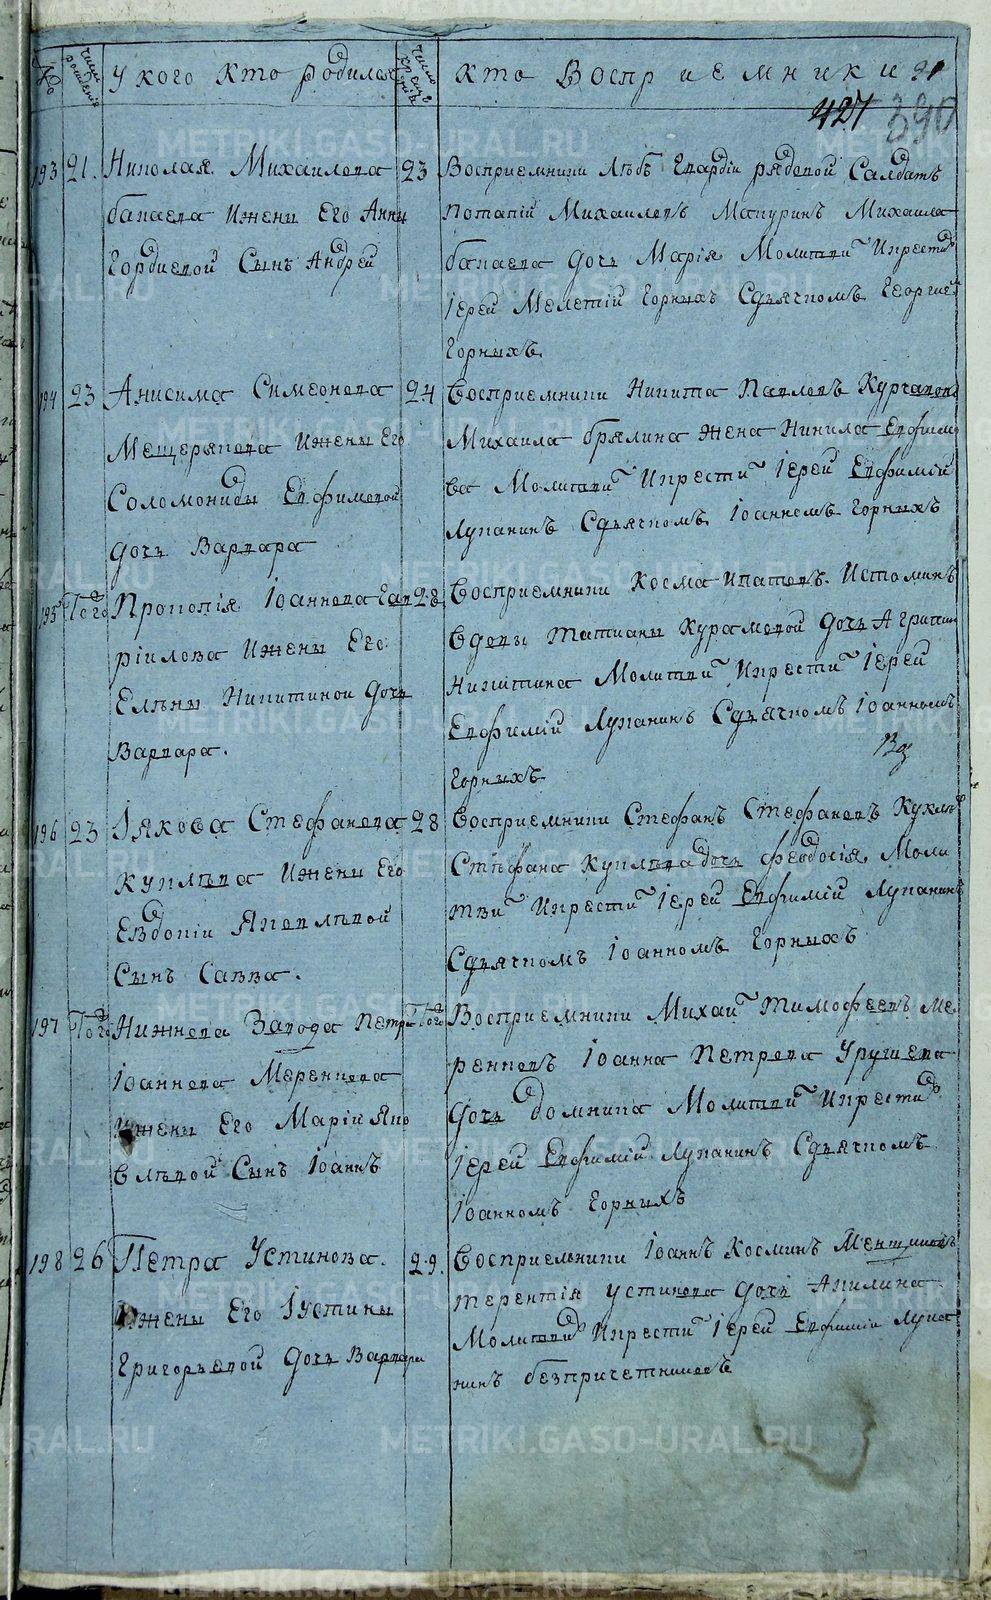 №
число рождения
У кого кто родился
число крещения
кто восприемники
427 390
193 21. Николая Михаилова
бакаева ижены Его Анны
Гордиевой Сынъ Андрей
23 Восприемники Лѣбъ Гвардіи рядовой Салдатъ
Потапій Михаиловъ Мапуринъ Михаила
бакаева дочь Марія Молитви Икрести
Іерей Мелетій Горныхъ Сдьячкомъ Георгием
Горныхъ
194 23 Анисима Симеонова
Мещерякова Ижены Его
Соломониды Евфимовой
дочь Варвара
24 Восприемники Никита Павловъ Курчавовъ
Михаила брялина жена Нинила Евфимо
ва Молитви Икрести Іерей Евфимій
Лупанинъ Сдьячкомъ Іоанномъ Горныхъ
195 Того Прокопія Іоаннова Гав
ріилова Ижены Его
Елѣны Никитиной дочь
Варвара.
28 Восприемники Косма Ипатовъ Истоминъ
Вдовы Татианы Курамовой дочь Агрипин
Никитина Молитви Икрести Іерей
Евфимій Лупанинъ Сдьячкомъ Іоанномъ
Горныхъ
196 23 Іякова Стефанова
Куклѣва Ижены Его
Евдокіи Яковлѣвой
Сынъ Савва.
28 Восприемники Стефанъ Стефановъ Куклѣв
Стѣфана Куклѣва дочь Феодосія Моли
тви Икрести Іерей Евфимій Лупанинъ
Сдьячкомъ Іоанномъ Горныхъ
197 Того Нижнева Завода Петра
Іоаннова Меренкова
Ижены Его Маріи Яко
влѣвой Сынъ Іоаннъ
Того Восприемники Михаи Тимофеевъ Ме
ренковъ Іоанна Петрова Урушева
дочь домника Молитви Икрести
Іерей Евфимій Лупанинъ Сдьячкомъ
Іоанномъ Горныхъ
198 26 Петра Устинова.
Ижены Его Іустины
Григорьевой дочь Варвара
29. Восприемники Іоаннъ Косминъ
терентія устинова дочь Акилина
Молитви Икрести Іерей Евфимій Лупа
нинъ безпричетниковъ
METRIKI.GASO-URAL.RU